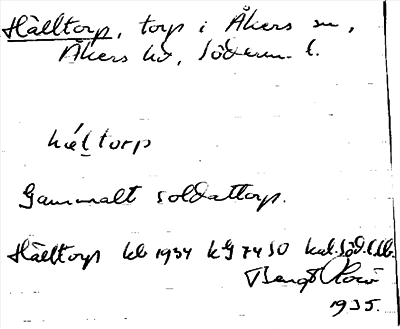 Hälltorp, torp i Åkers sn,
Åkers hd, Söderm. l.
häl̲torp
Gammalt soldattorp.
Hälltorp kb 1934 kG 7450 kal. Söd. l. lb.
Bengt
1935.